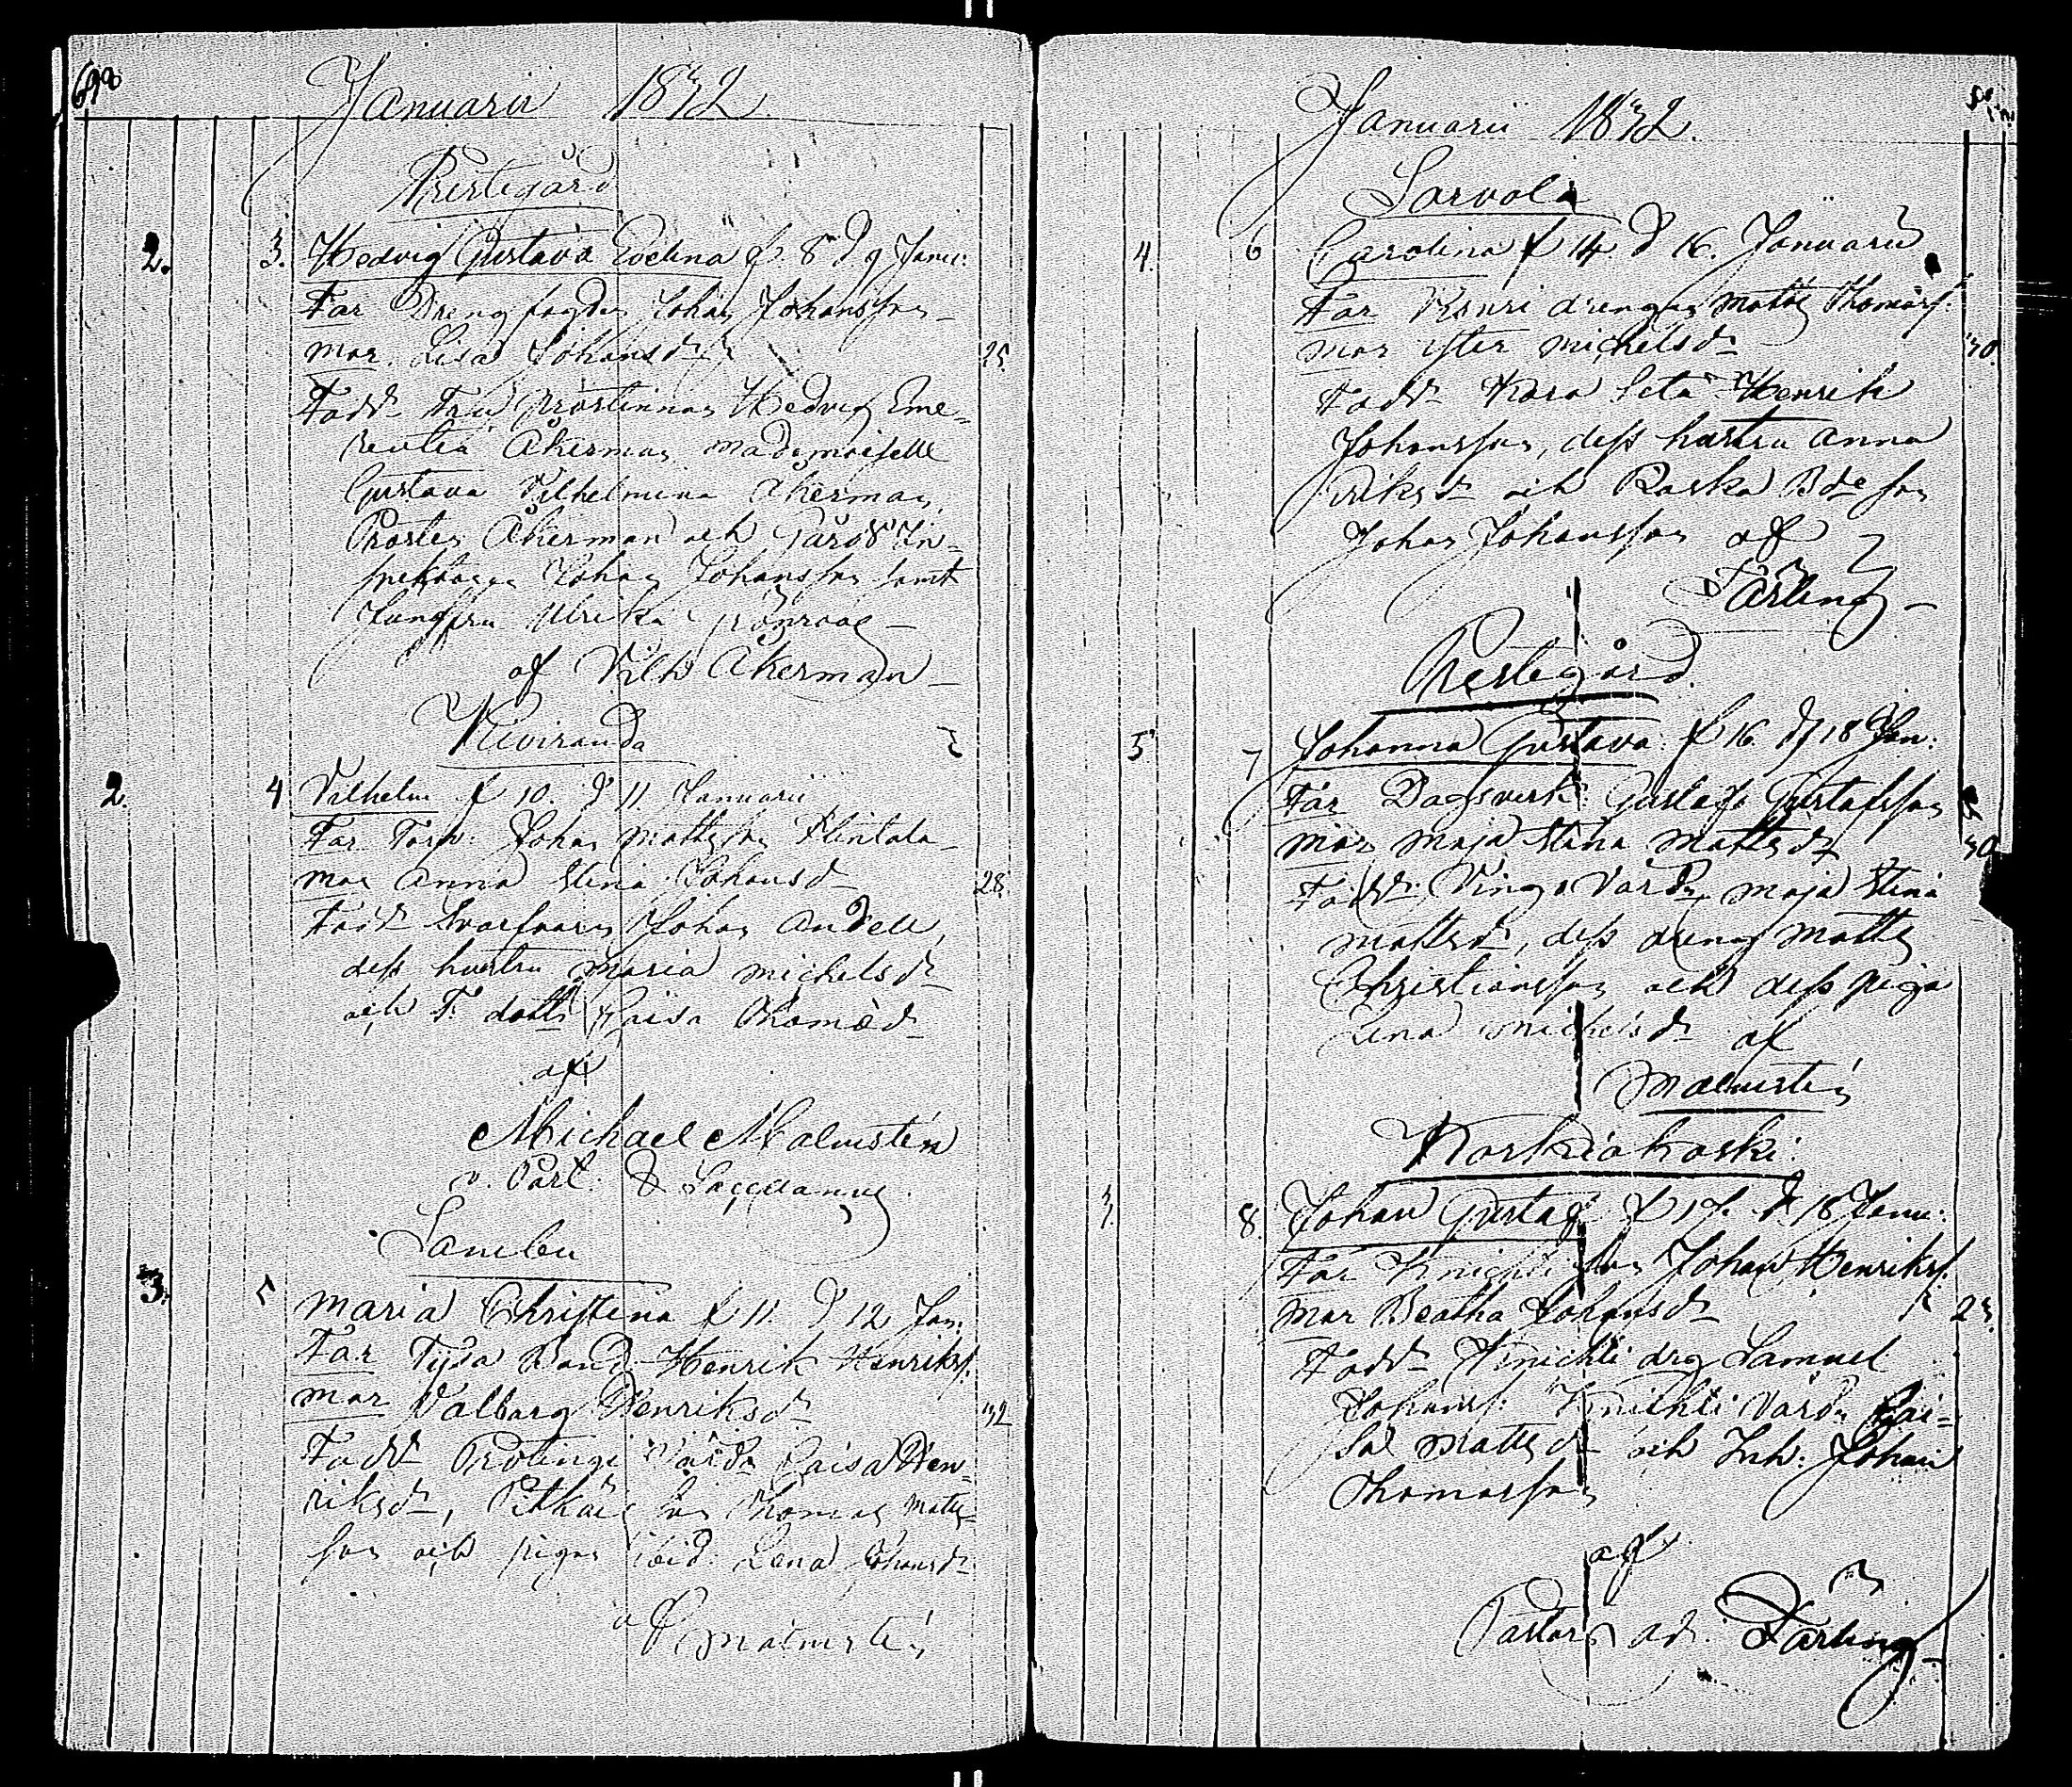 Januarii 1832.
Prestegård
2. 3. Hedvig Gustava Evelina f. 8 d 9 Janu:
Far Drengfogden Johan Johansson
mor Lisa Johansdr 25.
Fadd. Fru Prostinnan Hedvig Eme-
rentia Åkerman mademoiselle
Gustava Vilhelmina Åkerman
Prosten Åkerman och Gårds In-
spektoren Johan Johansson samt
Jungfru Ulrika Grönroos
af Vilh Åkerman
Kiviranda
2. 4 Vilhelm f 10. d 11 Januarii
Far Torp: Johan Mattsson Klintala
mor Anna Stina Johansd 28.
Fadd Svarfvaren Johan Andell,
dess hustru Maria Michelsdr
och T. dottr Caisa Thomæd
af
Michael Malmstén
v. Past. & Sacellanus
Sambu
3. 5 Maria Christina f 11. d 12 Jan:
Far Bond Henrik Henrikss.
mor Valborg Henriksdr 32
Fadd Caisa Hen-
riksdr, son Thomas Matts-
son och pigan ibid. Lena Johansdr
af Malmstén
Januarii 1832.
Sorvola
4. 6 Carolina f 14. d 16. Januarii
Far drengen Matts Thomass.
mor Michelsdr 30
Fadd Henrik
Johansson, dess hustru Anna
Eriksdr och Bde son
Johan Johansson af
Färling
Prestegård
5 7 Johanna Gustava f 16. d 18 Jan:
Far Dagsverk: Gustaf Gustafsson
mor Maja Stina Mattsdr 30
Fadd: Maja Stina
Mattsdr, dess dreng Matts
Christiansson och dess piga
Lena Michelsdr af
Malmstén
Korkiakoski:
3. 8. Johan Gustaf f 17. d. 18 Janu:
Far Knichti son Johan Henrikss.
Mor Beatha Johansdr 23.
Fadd Knichti drg Samuel
Johanss. Knichti Värdn Cai-
sa Mattsdr och Inh: Johan
Thomasson
af
Pastors adj. Färling